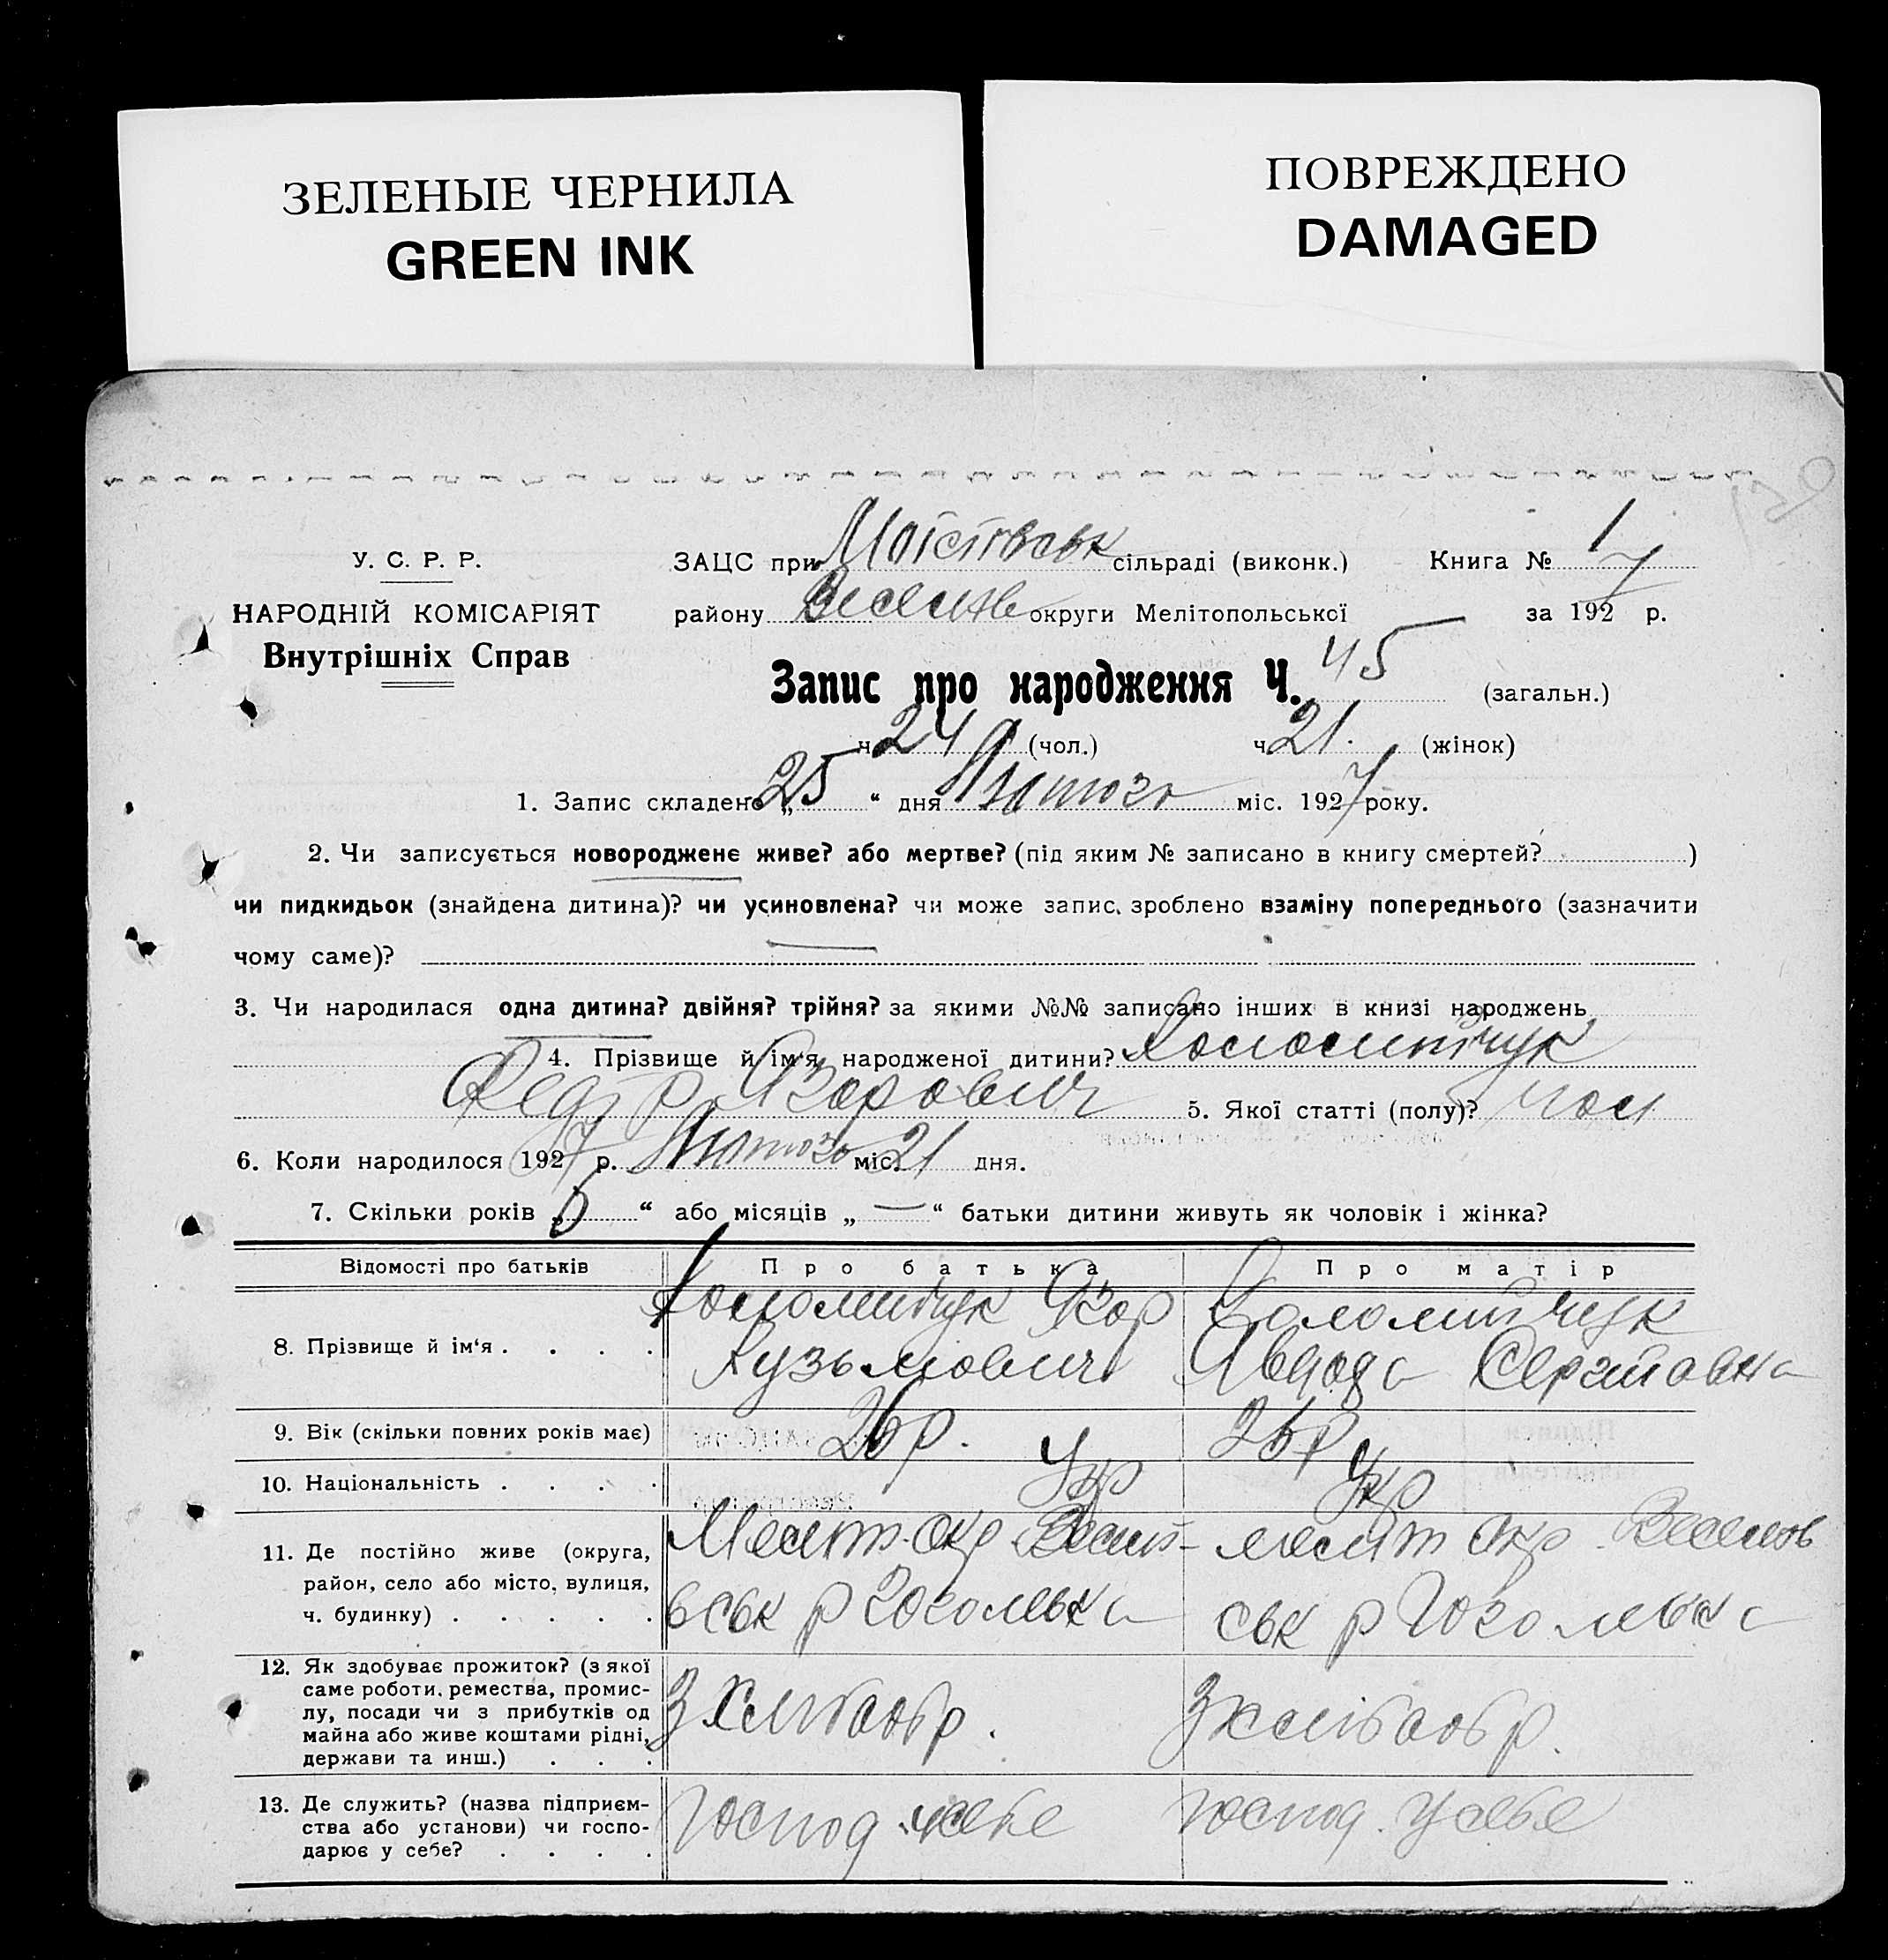 ЗЕЛЕНЫЕ ЧЕРНИЛА
GREEN INK
ПОВРЕЖДЕНО
DAMAGED
У. С. Р. Р.
НАРОДНІЙ КОМІСАРІЯТ
Внутрішніх Справ
ЗАЦС при сільраді (виконк.) Книга № 1
району округи Мелітопольської за 1927 р.
Запис про народження Ч. 45 (загальн.)
ч 24 (чол.) ч 21. (жінок)
1. Запис складено „ 25 “ дня Лютого міс. 1927 року.
2. Чи записується новороджене живе? або мертве? (під яким № записано в книгу смертей? )
чи пидкидьок (знайдена дитина)? чи усиновлена? чи може запис зроблено взаміну попереднього (зазначити
чому саме)?
3. Чи народилася одна дитина? двійня? трійня? за якими №№ записано інших в книзі народжень
4. Прізвище й ім'я народженої дитини? Коломийчук
Федір Язорович 5. Якої статті (полу)? чол
6. Коли народилося 1927 р. Лютого міс. 21 дня.
7. Скільки років „ “ або місяців „ — “ батьки дитини живуть як чоловік і жінка?
Відомості про батьків Про батька Про матір
8. Прізвище й ім'я . . . . Коломийчук Язор Коломийчук
Кузьмович Явдода Сергіївна
9. Вік (скільки повних років має) 26 р. 26 р
10. Національність . . . . Укр Укр
11. Де постійно живе (округа, район, село або місто, вулиця, ч. будинку) . . . . .
Мелит. Окр Весил- мелит Окр. Веселов
вськ р Гоголевка ськ р Гоголевка
12. Як здобуває прожиток? (з якої саме роботи, ремества, промис-
лу, посади чи з прибутків од
майна або живе коштами рідні,
держави та инш.) . . .
З Хлібаобр. З хлібаобр.
13. Де служить? (назва підприєм-
ства або установи) чи госпо-
дарює у себе? . . . .
Господ. у себе Господ. у себе